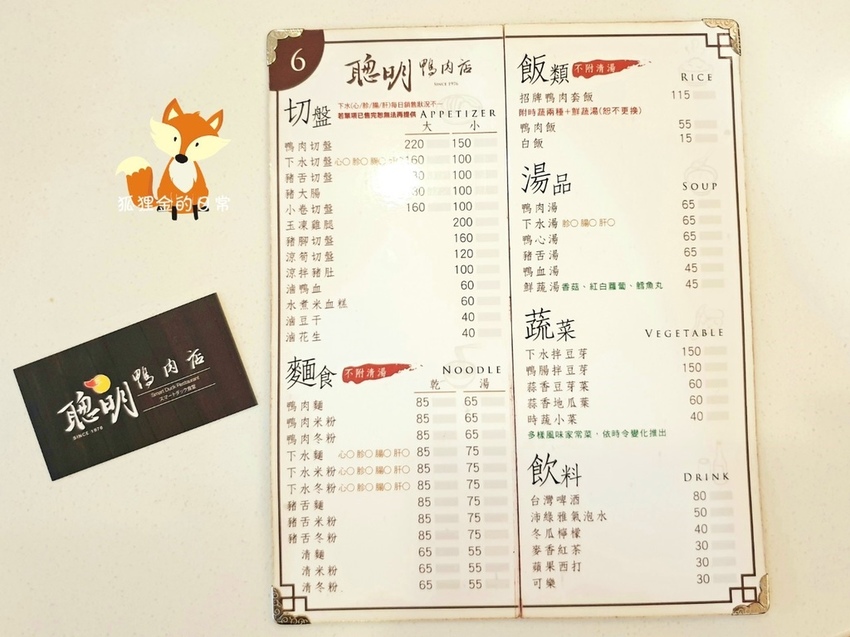 6
聰明 鴨肉店
SINCE 1976
切盤
下水(心/胗/腸/肝)每日銷售狀況不一
若單項已售完恕無法再提供
APPETIZER
大 小
鴨肉切盤 220 150
下水切盤 心○ 胗○ 腸○ 160 100
豬舌切盤 100
豬大腸 100
小卷切盤 160 100
玉凍雞腿 200
豬腳切盤 160
涼筍切盤 120
涼拌豬肚 100
滷鴨血 60
水煮米血糕 60
滷豆干 40
滷花生 40
麵食 不附清湯 NOODLE
乾 湯
鴨肉麵 85 65
鴨肉米粉 85 65
鴨肉冬粉 85 65
下水麵 心○ 胗○ 腸○ 肝○ 85 75
下水米粉 心○ 胗○ 腸○ 肝○ 85 75
下水冬粉 心○ 胗○ 腸○ 肝○ 85 75
豬舌麵 85 75
豬舌米粉 85 75
豬舌冬粉 85 75
清麵 65 55
清米粉 65 55
清冬粉 65 55
飯類 不附清湯 RICE
招牌鴨肉套飯 115
附時蔬兩種+鮮蔬湯(恕不更換)
鴨肉飯 55
白飯 15
湯品 SOUP
鴨肉湯 65
下水湯 胗○ 腸○ 肝○ 65
鴨心湯 65
豬舌湯 65
鴨血湯 45
鮮蔬湯 香菇、紅白蘿蔔、鱈魚丸 45
蔬菜 VEGETABLE
下水拌豆芽 150
鴨腸拌豆芽 150
蒜香豆芽菜 60
蒜香地瓜葉 60
時蔬小菜 40
多樣風味家常菜，依時令變化推出
飲料 DRINK
台灣啤酒 80
沛綠雅氣泡水 50
冬瓜檸檬 40
麥香紅茶 30
蘋果西打 30
可樂 30
狐狸金的日常
聰明 鴨肉店
Smart Duck Restaurant
スマートダック食堂
SINCE 1976